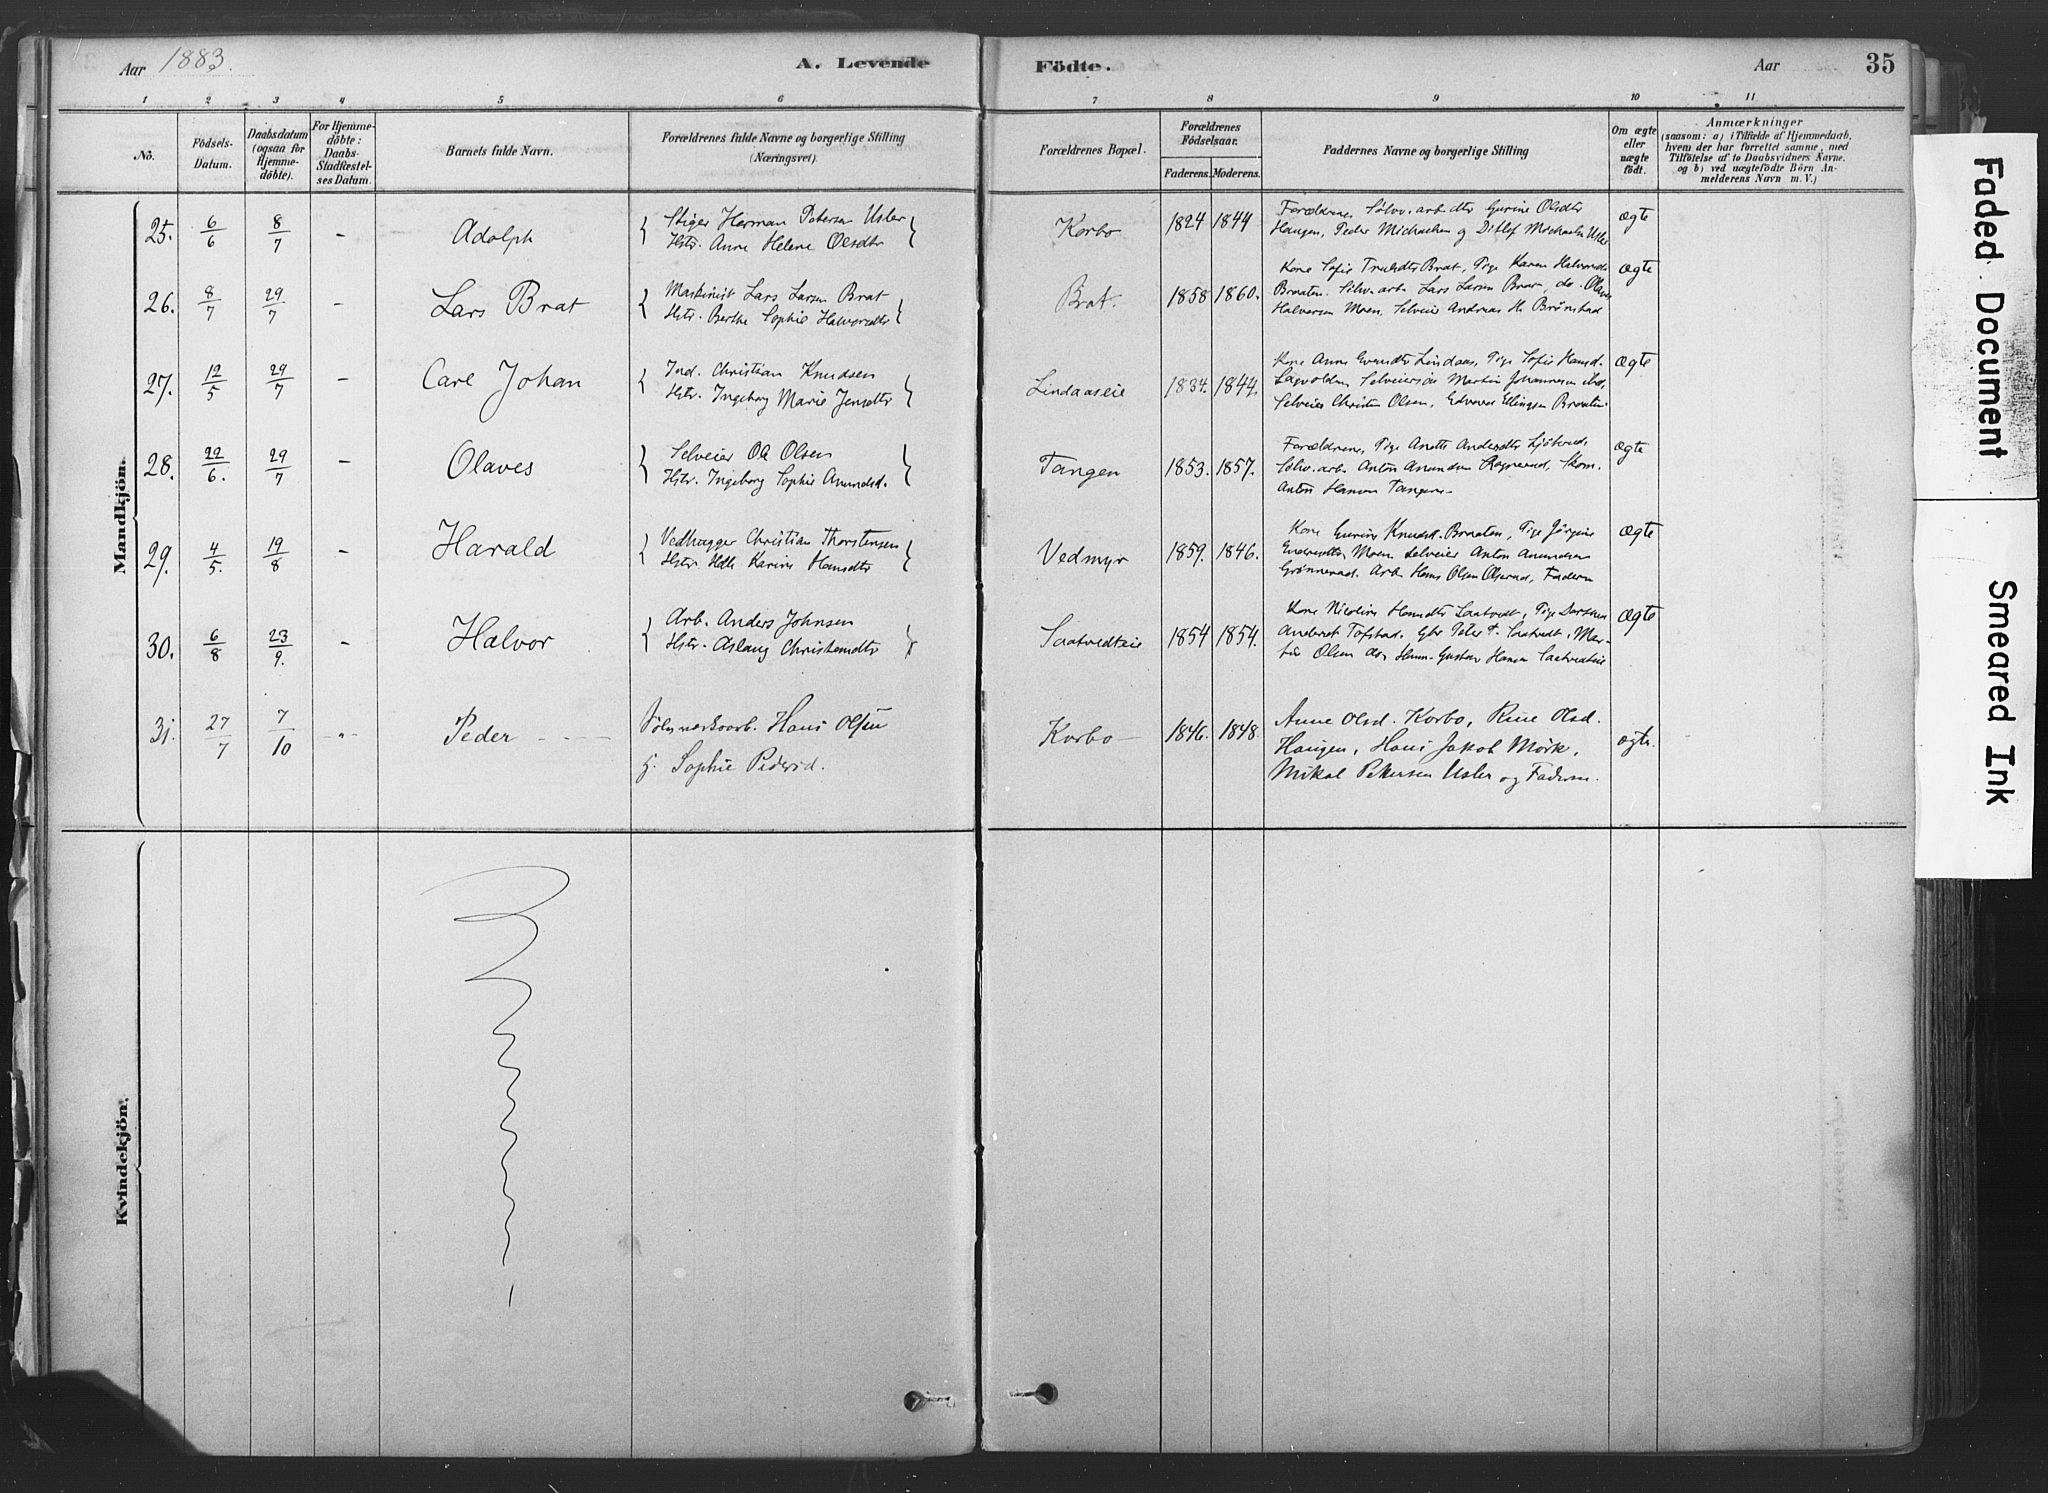 Aar 1883.
A. Levende
Födte.
Aar
35
1 2 3 4 5 6 7 8 9 10 11
No.
Födsels-
Datum.
Daabsdatum
(ogsaa for
Hjemme-
döbte).
For Hjemme-
döbte:
Daabs-
Stadfæstel-
ses Datum.
Barnets fulde Navn.
Forældrenes fulde Navne og borgerlige Stilling
(Næringsvei).
Forældrenes Bopæl.
Forældrenes
Födselsaar.
Faderens. Moderens.
Faddernes Navne og borgerlige Stilling
Om ægte
eller
uægte
födt.
Anmærkninger
(saasom: a) i Tilfælde af Hjemmedaab,
hvem der har forrettet samme, med
Tilföielse af to Daabsvidners Navne,
og b) ved uægtefödte Börn An-
melderens Navn m. V.)
Mandkjön.
25. 6/6 8/7 - Adolph
Stiger Herman Petersen Usler
Hstr. Anne Helene Olsdtr
Korbo 1824 1844
Forældrene, Sølv.arb. dtr Gurine Olsdtr
Haugen, Peder Michaelsen og Ditlef Michaelsen Usler
ægte
26. 8/7 29/7 - Lars Brat
Maskinist Lars Larsen Brat
Hstr. Berthe Sophie Halvorsdtr
Brat. 1858 1860.
Kone Sofie Trulsdtr Brat, Pige Karen Halvorsdtr
Braaten. Sølv.arb. Lars Larsen Brat, do. Olaves
Halvorsen Moen, Selveier Andreas H. Brønstad
ægte
27. 12/5 29/7 - Carl Johan
Ind. Christian Knudsen
Hstr. Ingeborg Marie Jensdtr
Lindaaseie 1834. 1844.
Kone Anne Evensdtr Lindaas, Pige Sofie Hansd.
Martin Johannesen
Selveier Christen Olsen, Edvard Ellingsen Braaten
ægte
28. 22/6. 29/7 - Olaves
Selveier Ole Olsen
Hstr. Ingeborg Sophie Amundsd.
Tangen 1853. 1857.
Forældrene, Pige Anette Andersdtr
Sølv.arb. Anton Amundsen
Anton Hansen Tangen
ægte
29. 4/5. 19/8 - Harald
Vedhugger Christian Thorstensen
Hstr. Karine Hansdtr
Vedmyr 1859. 1846.
Kone Gurine Knudsd. Braaten, Pige Jørgine
Moen, Selveier Anton Amundsen
Grønnerud. Arb. Hans Olsen Olserud, Faderen
ægte
30. 6/8 23/9. - Halvor
Arb. Anders Johnsen
Hstr. Aslaug Christensdtr
Saatvedteie 1854 1854.
Kone Nicoline Hansdtr Saatvedt, Pige
Andersd. Tofstad. Gbr. Peter T. Saatvedt, Mar-
tin Olsen do, Gustav Hansen Saatvedteie
ægte
31. 27/7 7/10 -"- Peder
Sølvverksarb. Hans Olsen
H. Sophie Pedersd.
Korbo 1846. 1848.
Anne Olsd. Korbo, Rine Olsd.
Haugen, Hans Jakob Mørk,
Mikal Pettersen Usler og Faderen.
ægte.
Kvindekjön.
Faded Document
Smeared Ink